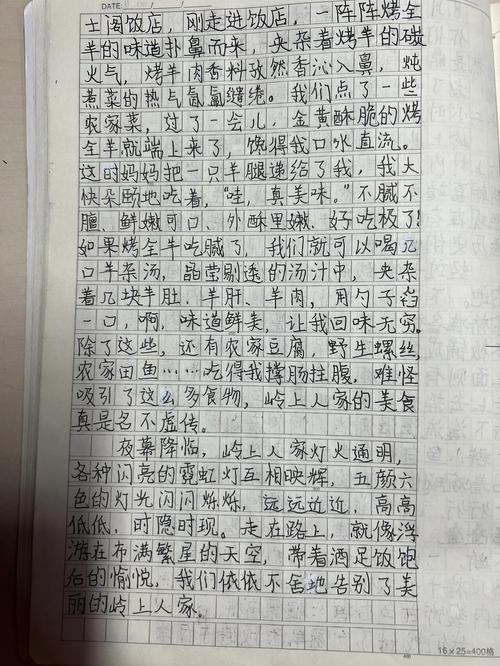 士阁饭店，刚走进饭店，一阵阵烤全
羊的味道扑鼻而来，夹杂着烤羊的碳
火气，烤羊肉香料孜然香沁入鼻，炖
煮菜的热气氤氲缱绻。我们点了一些
农家菜，过了一会儿，金黄酥脆的烤
全羊就端上来了，馋得我口水直流。
这时妈妈把一只羊腿递给了我，我大
快朵颐地吃着，“哇，真美味。”不腻不
膻、鲜嫩可口、外酥里嫩、好吃极了！
如果烤全羊吃腻了，我们就可以喝几
口羊杂汤，晶莹剔透的汤汁中，夹杂
着几块羊肚、羊肝、羊肉，用勺子舀
一口，啊，味道鲜美，让我回味无穷。
除了这些，还有农家豆腐，野生螺丝，
农家田鱼……吃得我撑肠拄腹，难怪
吸引了这么多食物，岭上人家的美食
真是名不虚传。
夜幕降临，岭上人家灯火通明，
各种闪亮的霓虹灯互相映辉，五颜六
色的灯光闪闪烁烁，远远近近，高高
低低，时隐时现。走在路上，就像浮
游在布满繁星的天空，带着酒足饭饱
后的愉悦，我们依依不舍地告别了美
丽的岭上人家。
16×25=400格